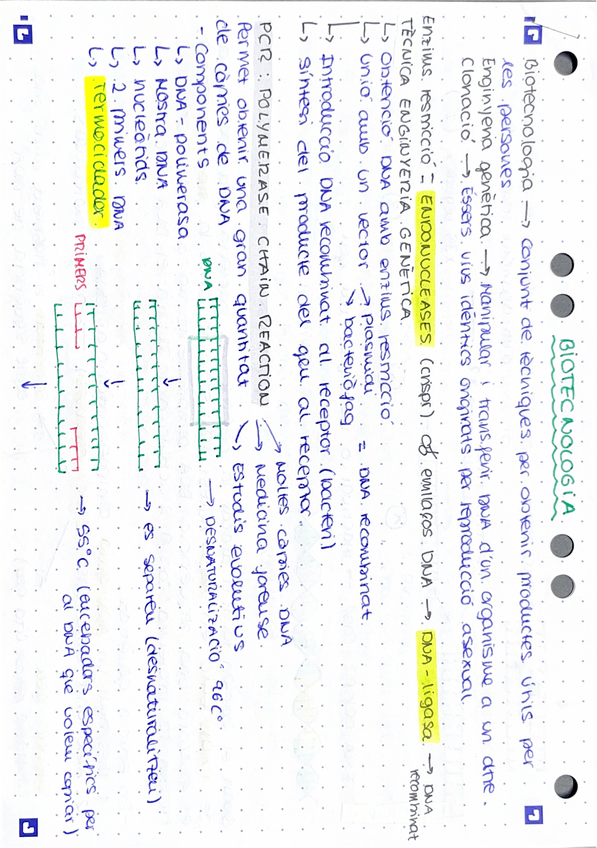 BIOTECNOLOGIA
Biotecnologia → conjunt de tècniques per obtenir productes útils per
les persones
Enginyeria genètica → Manipular i transferir DNA d'un organisme a un altre.
Clonació → Éssers vius idèntics originats per reproducció asexual
Enzims restricció = ENDONUCLEASES (crispr) enllaços DNA → DNA-ligasa → DNA
recombinat
TÈCNICA ENGINYERIA GENÈTICA
↳ Obtenció DNA amb enzims restricció
↳ Unió amb un vector → plasmidi = DNA recombinat
↘ bacteriòfag
↳ Introducció DNA recombinat al receptor (bacteri)
↳ Síntesi del producte del gen al receptor.
PCR: POLYMERASE CHAIN REACTION → Moltes còpies DNA
→ Medicina forense
↘ Estudis evolutius
Permet obtenir una gran quantitat
de còpies de DNA
- Components
↳ DNA-polimerasa
↳ Nostra DNA
↳ nucleòtids.
↳ 2 primers DNA
↳ Termociclador.
DNA → DESNATURALIZACIÓ 96C°
→ es separen (desnaturalitzen)
PRIMERS → 55°C (encebadors específics per
al DNA que volem copiar)